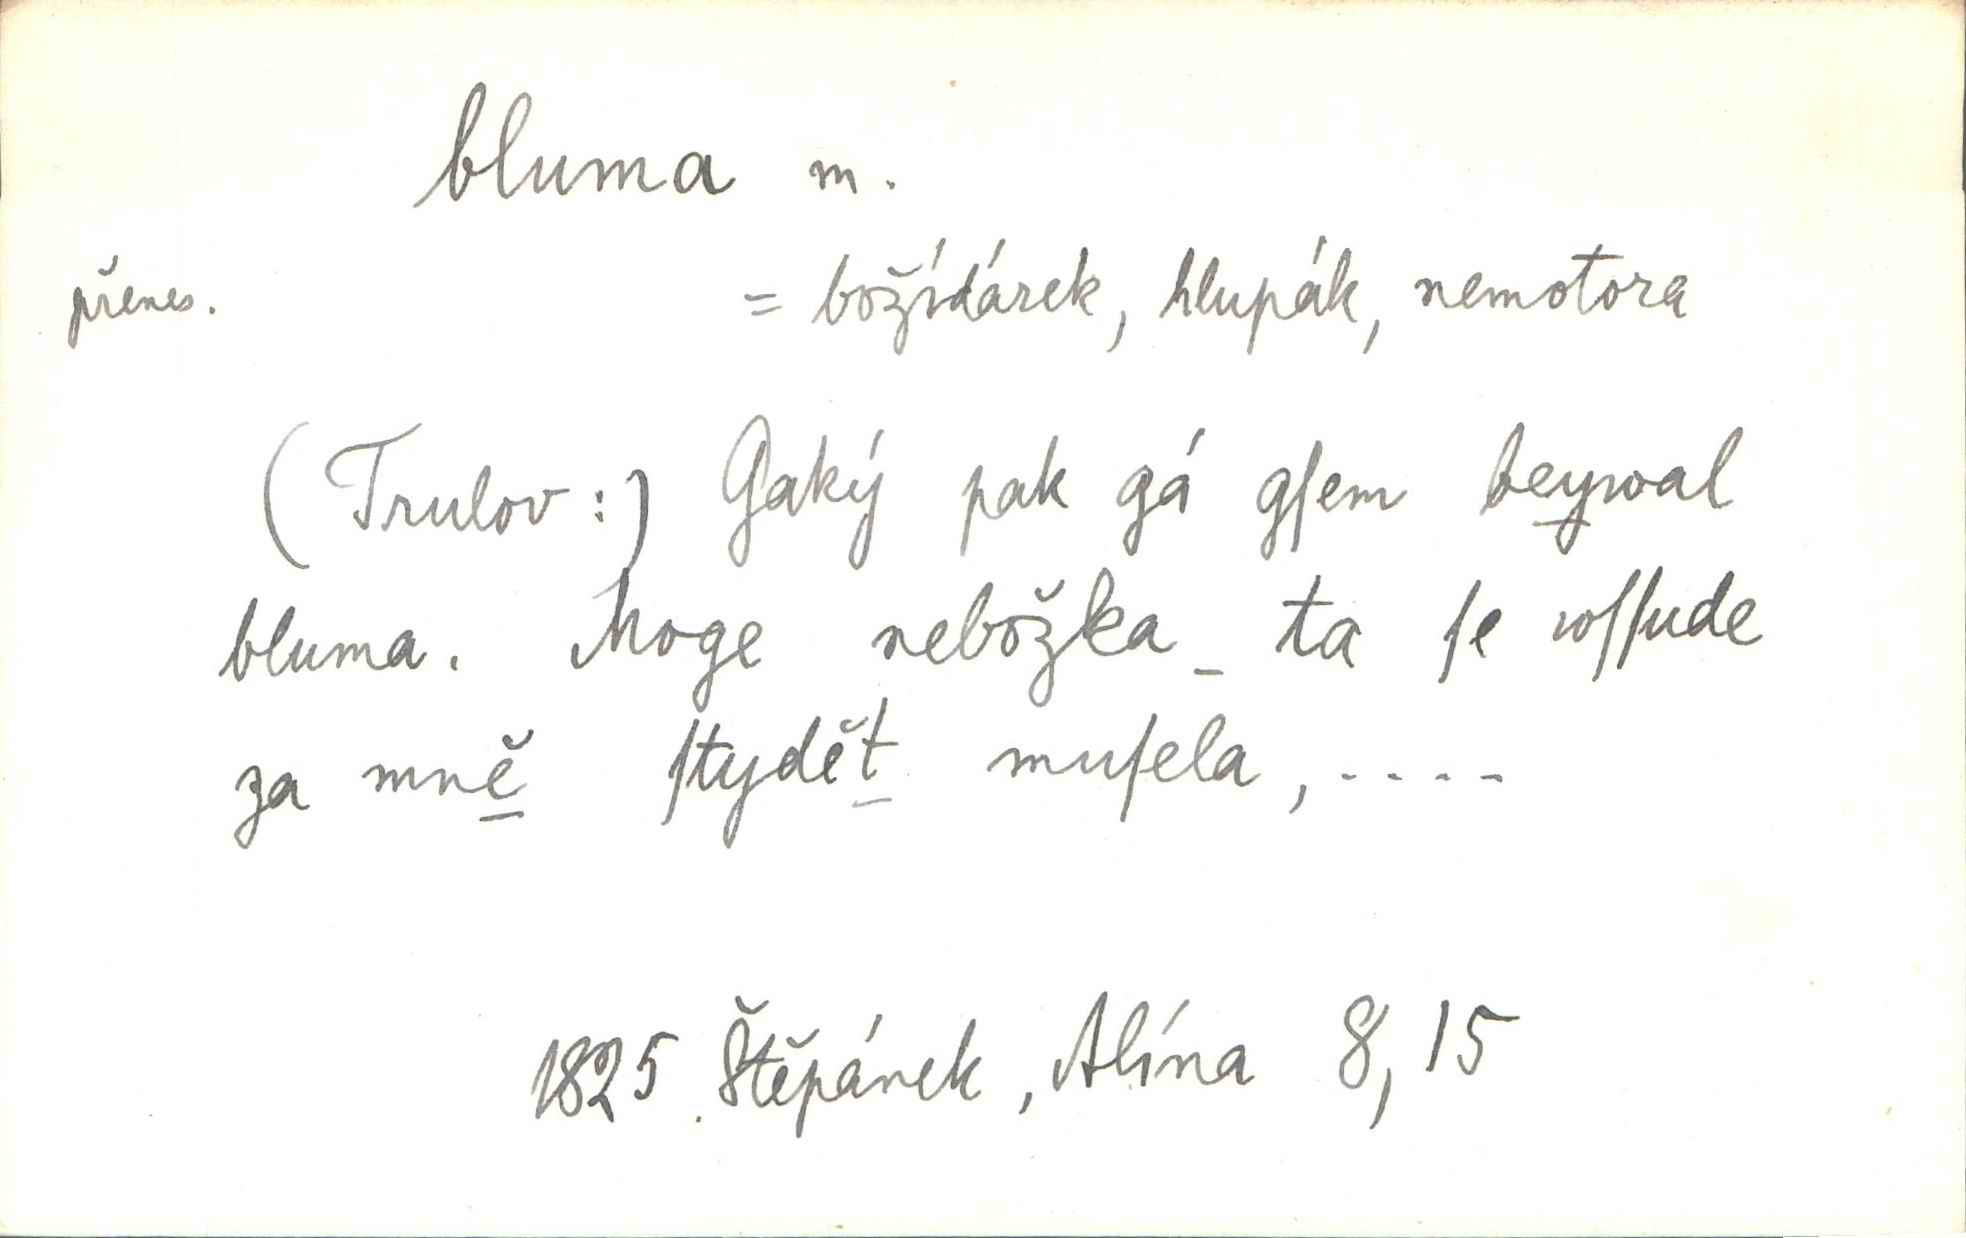 bluma m.
přenes. = božídárek, hlupák, nemotora
(Trulov:) Gaký pak gá gſem beywal
bluma. Moge nebožka - ta ſe wſſude
za mně ſtydět muſela, ....
1825 Štěpánek, Alína 8, 15